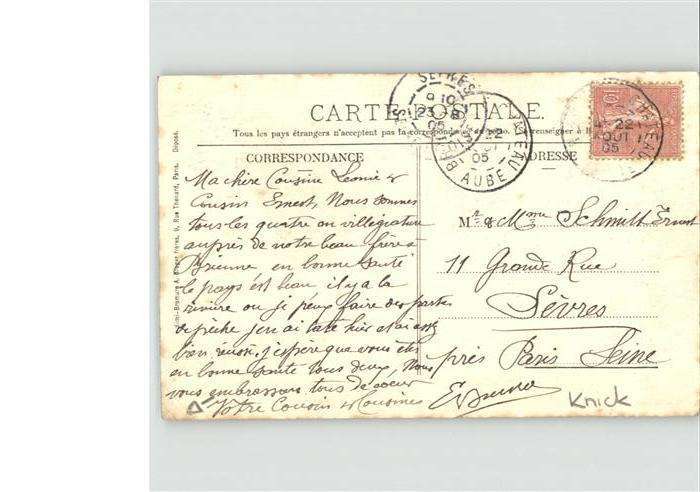 CARTE POSTALE.
Tous les pays étrangers n'acceptent pas la correspondance au recto. Se renseigner à
CORRESPONDANCE
ADRESSE
Ma chère Cousine Léonie &
Cousin Ernest, Nous sommes
tous les quatre en villégiature
auprès de notre beau frère à
Brienne en bonne santé
le pays est beau il y a la
rivière ou je peux faire des parties
de pèche j'en ai taté hier et ai assez
bien reussi, j'espère que vous êtes
en bonne santé tous deux, Nous
vous embrassons tous de coeur
Votre Cousin & Cousines
M. & Mme Schmitt Ernest
11 Grande Rue
Sèvres
près Paris Seine
Knick
SEVRES
9 10
23 - 8
05
BRIENNE CHATEAU
22
AOUT
05
AUBE
CHATEAU
22
AOUT
05
10